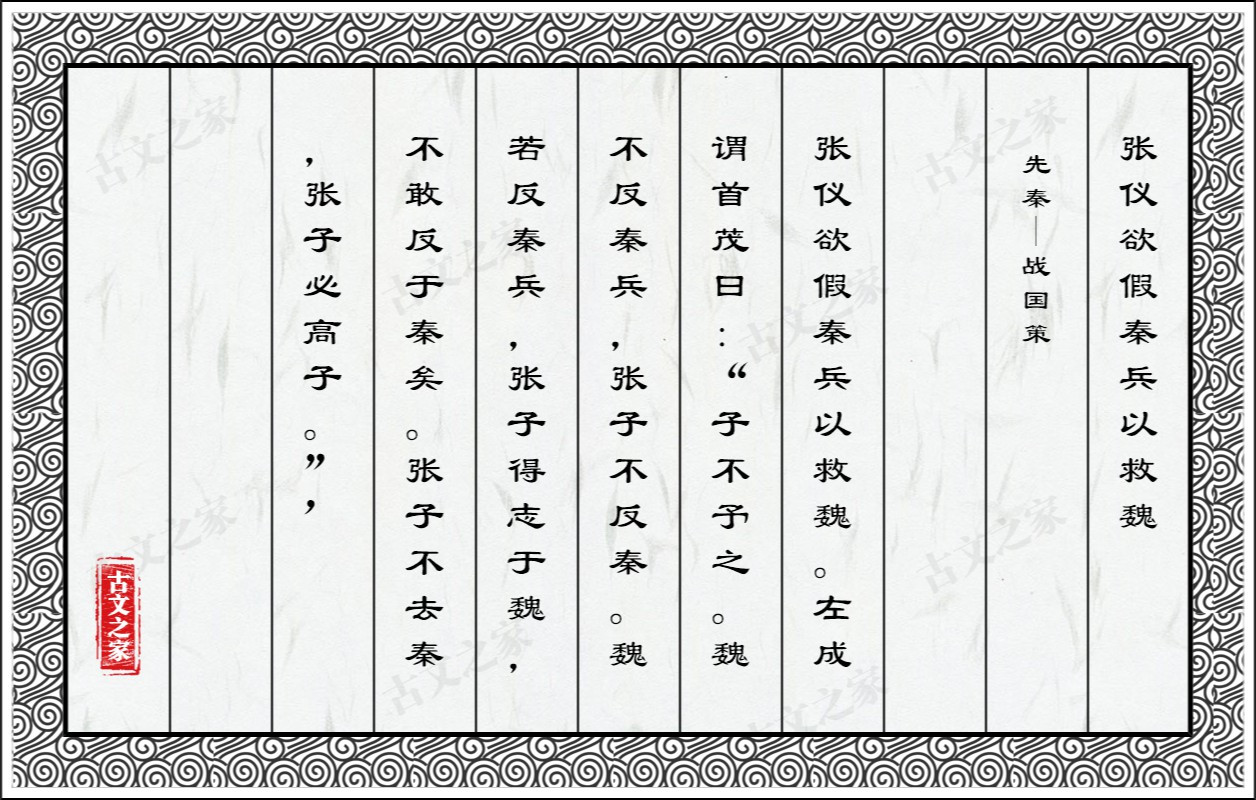 张仪欲假秦兵以救魏
先秦—战国策
张仪欲假秦兵以救魏。左成
谓首茂曰：“子不予之。魏
不反秦兵，张子不反秦。魏
若反秦兵，张子得志于魏，
不敢反于秦矣。张子不去秦
，张子必高子。”，
古文之家